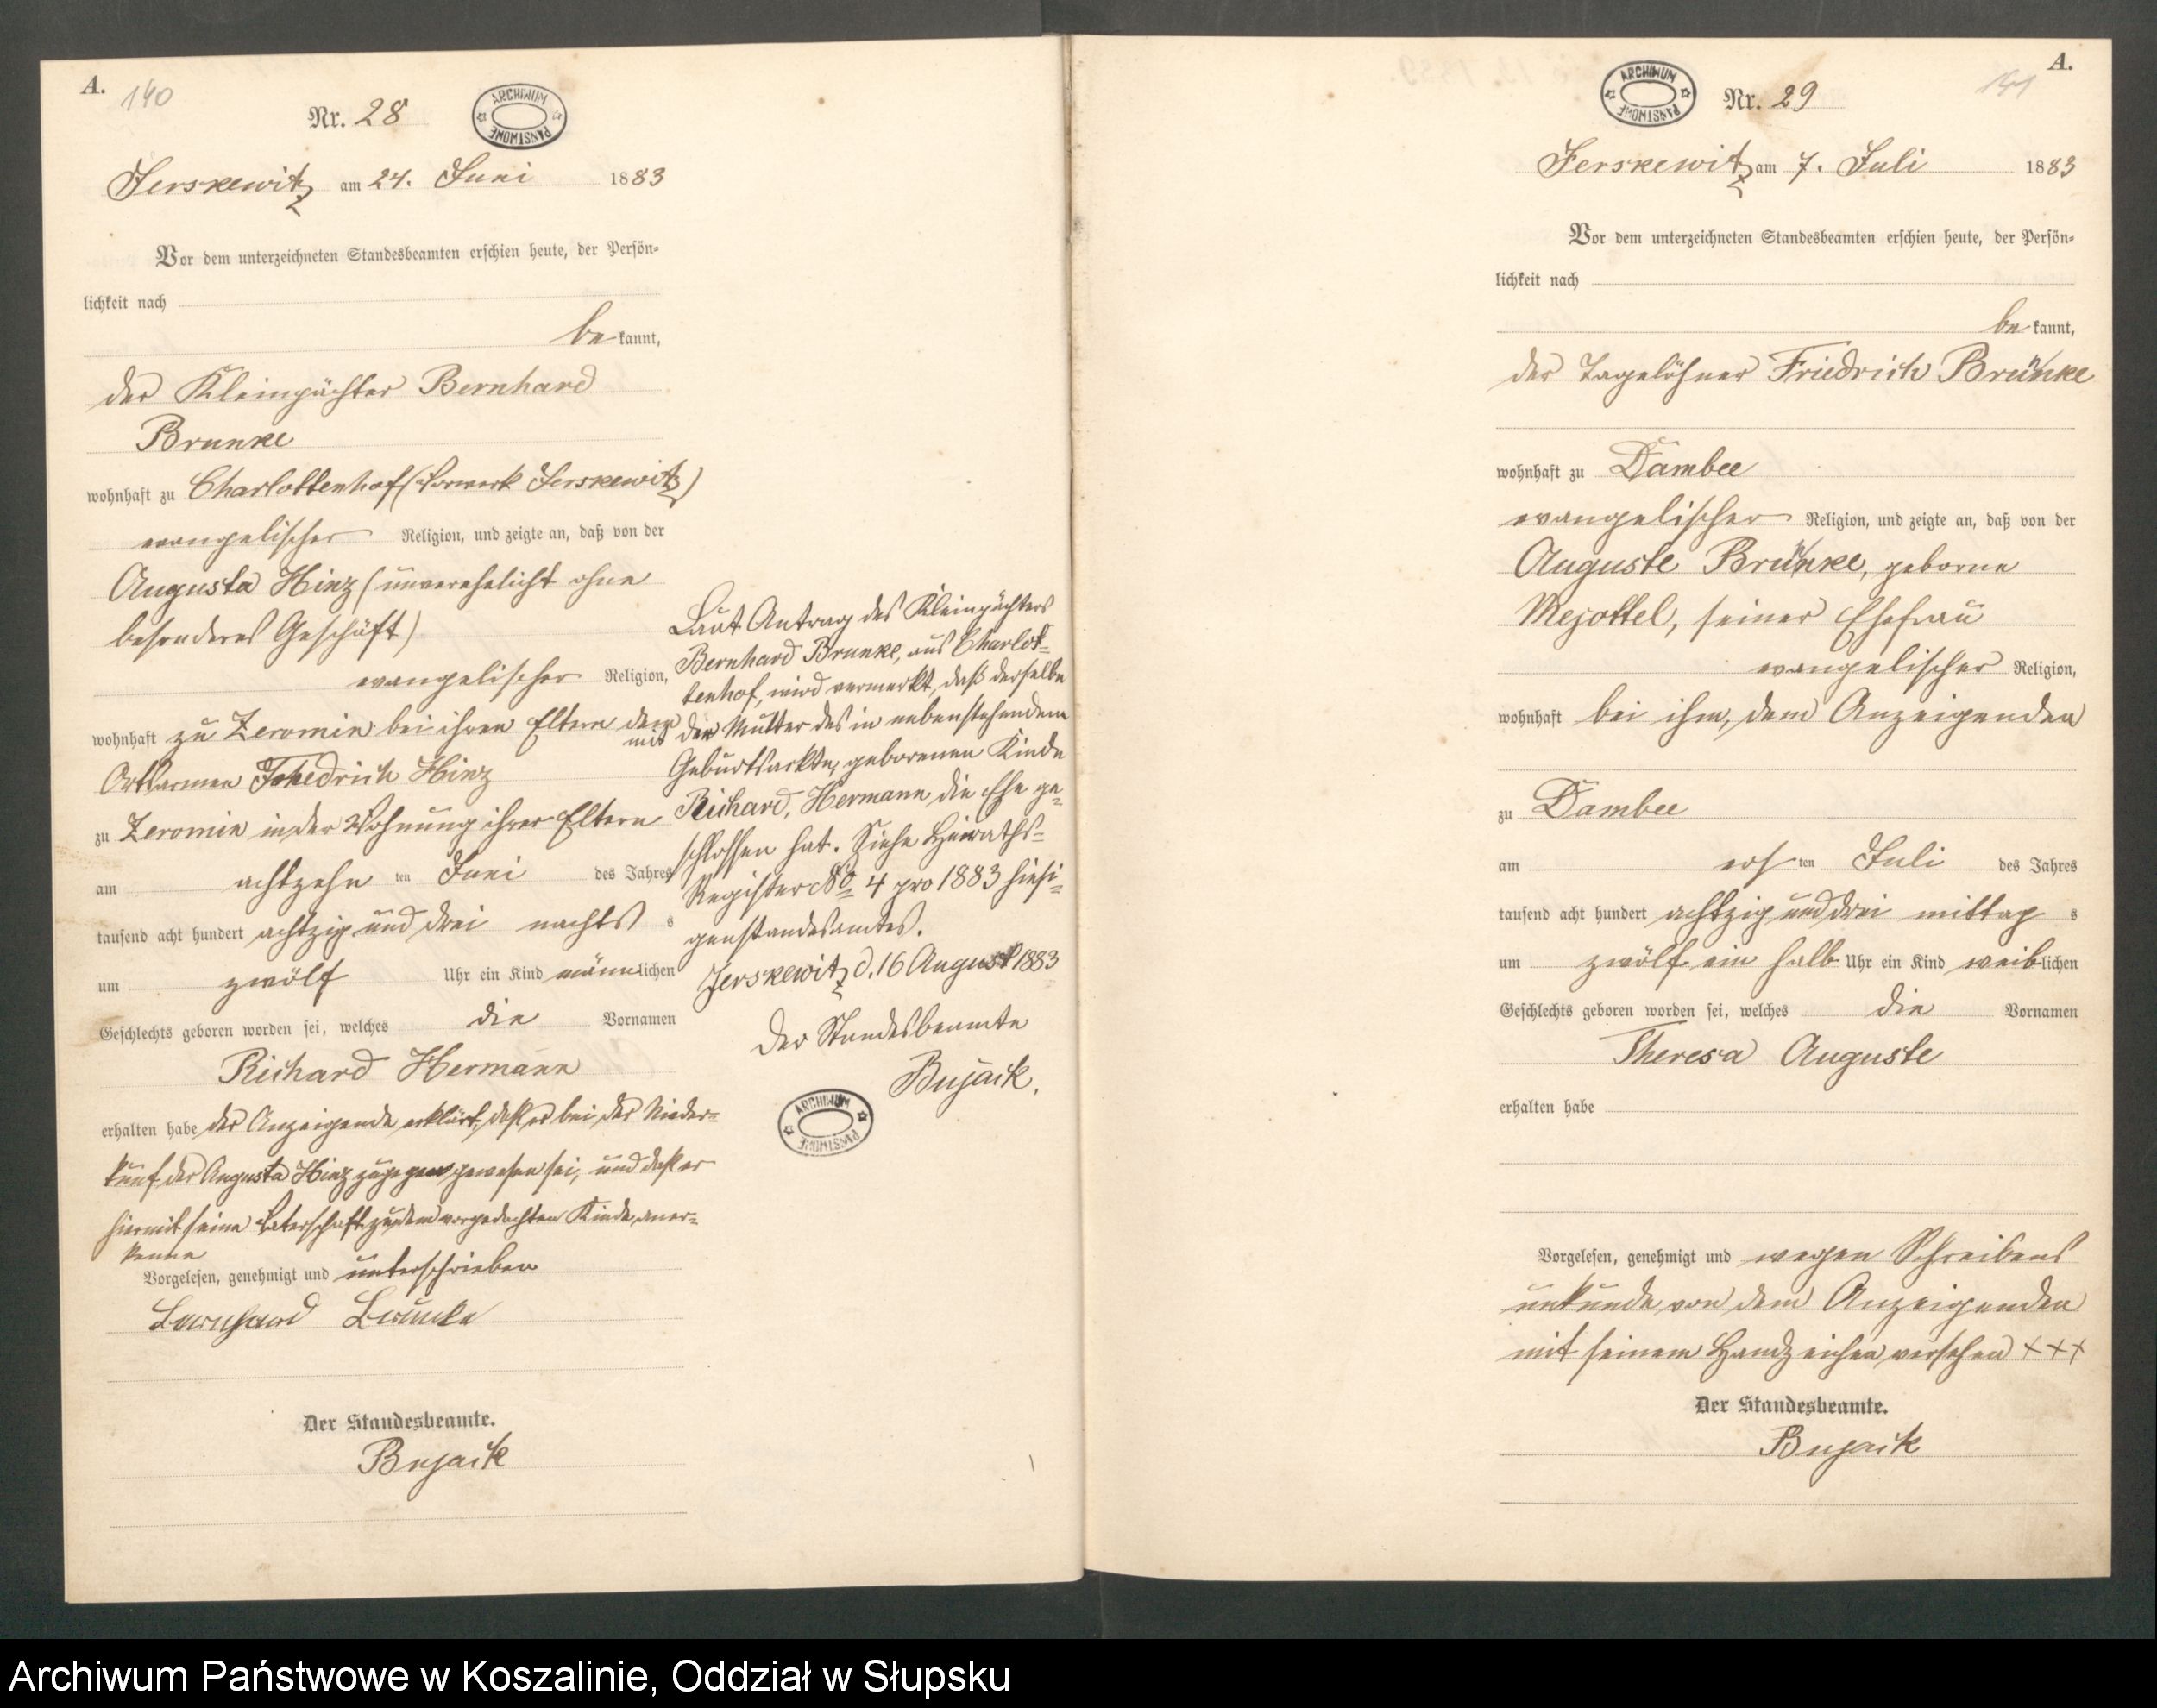 A.
140
Nr. 28
ARCHIWUM PAŃSTWOWE
Jerskewitz am 24. Juni 1883
Vor dem unterzeichneten Standesbeamten erschien heute, der Persön-
lichkeit nach
be kannt,
der Kleinpächter Bernhard
Brunke
wohnhaft zu Charlottenhof (Vorwerk Jerskewitz)
evangelischer Religion, und zeigte an, daß von der
Augusta Hinz (unverehelicht ohne
besonderes Geschäft)
evangelischer Religion,
wohnhaft zu Zeromin bei ihren Eltern dem
Ortsarmen Friedrich Hinz
zu Zeromin in der Wohnung ihrer Eltern
am achtzehn ten Juni des Jahres
tausend acht hundert achtzig und drei nachts s
um zwölf Uhr ein Kind männlichen
Geschlechts geboren worden sei, welches die Vornamen
Richard Hermann
erhalten habe der Anzeigende erklärt, daß er bei der Nieder-
kunf der Augusta Hinz zugegen gewesen sei, und daß er
hiermit seine Vaterschaft zu dem vorgedachten Kinde aner-
kenne
Vorgelesen, genehmigt und unterschrieben
Bernhard Brunke
Der Standesbeamte.
Bujack
Laut Antrag des Kleinpächters
Bernhard Brunke, aus Charlot-
tenhof, wird vermerkt, daß derselbe
mit der Mutter des in nebenstehendem
Geburtsackte, geborenen Kinde
Richard, Hermann die Ehe ge-
schlossen hat. Siehe Heiraths-
Register No 4 pro 1883 hiesi-
genstandesamtes.
Jerskewitz d. 16 August 1883
Der Standesbeamte
Bujack.
ARCHIWUM PAŃSTWOWE
A.
141
ARCHIWUM PAŃSTWOWE
Nr. 29
Jerskewitz am 7. Juli 1883
Vor dem unterzeichneten Standesbeamten erschien heute, der Persön-
lichkeit nach
be kannt,
der Tagelöhner Friedrich Brünke
wohnhaft zu Dambee
evangelischer Religion, und zeigte an, daß von der
Auguste Brünke, geborne
Mejottel, seiner Ehefrau
evangelischer Religion,
wohnhaft bei ihm, dem Anzeigenden
zu Dambee
am ers ten Juli des Jahres
tausend acht hundert achtzig und drei mittag s
um zwölf ein halb Uhr ein Kind weiblichen
Geschlechts geboren worden sei, welches die Vornamen
Theresa Auguste
erhalten habe
Vorgelesen, genehmigt und wegen Schreibens
unkunde von dem Anzeigenden
mit seinem Handzeichen versehen +++
Der Standesbeamte.
Bujack
Archiwum Państwowe w Koszalinie, Oddział w Słupsku